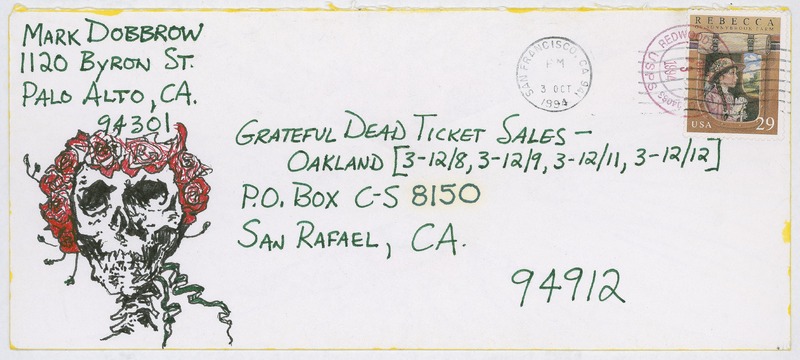 MARK DOBBROW
1120 BYRON ST.
PALO ALTO, CA.
94301
GRATEFUL DEAD TICKET SALES —
OAKLAND [3-12/8, 3-12/9, 3-12/11, 3-12/12]
P.O. BOX C-S 8150
SAN RAFAEL, CA.
94912
SAN FRANCISCO, CA 941
PM
3 OCT
1994
REDWOOD
USPS
1994
REBECCA
OF SUNNYBROOK FARM
USA
29